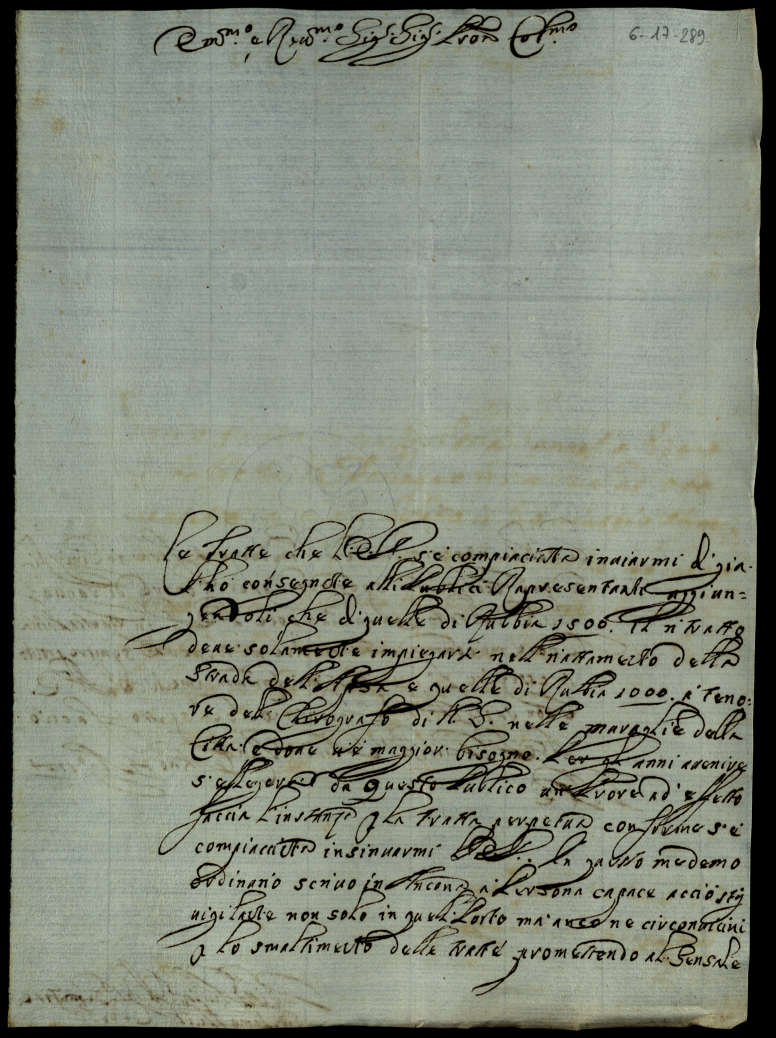 Em.mo e Rev.mo Sig.r Sig.r Pron Col.mo
6-17-289
Le tratte che V. Em. s'è compiaciuta inviarmi di già
l'hò consegnate alli Publici Rapresentanti aggiun=
gendoli che di quelle di Rubbia 1500. il ritratto
deve solamente impiegarsi nell'riattamento della
Strada dell' e quelle di Rubbia 1000. à teno=
re del Chirografo di N. S. nelle muraglie della
Città, e dove n'è maggior bisogno. Per gl'anni avenire
s'eleggerà da questo Publico un ad' effetto
faccia l'instanza p la tratta perpetua conforme s'è
compiaciuta insinuarmi V. Em. In questo medemo
ordinario scrivo in Ancona à Persona capace acciò stij
vigilante non solo in quel Porto mà anco ne circonvicini
p lo smaltimento delle tratte promettendo al Sensale